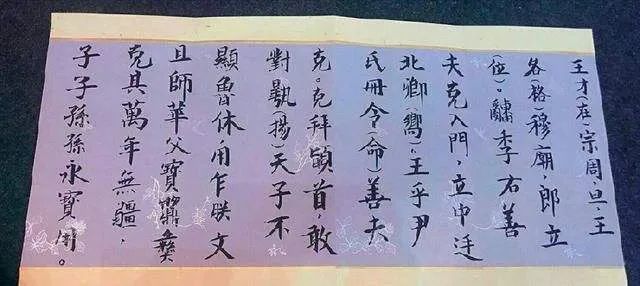 王才(在)宗周,旦,王
各(格)穆廟,即立
(位)。季右善
夫克入門,立中廷
北卿(嚮),王乎尹
氏冊令(命)善夫
克。克拜䭫首,敢
對(揚)天子不
顯魯休,用乍朕文
且師華父寶彝
克其萬年無疆,
子子孫孫永寶用。